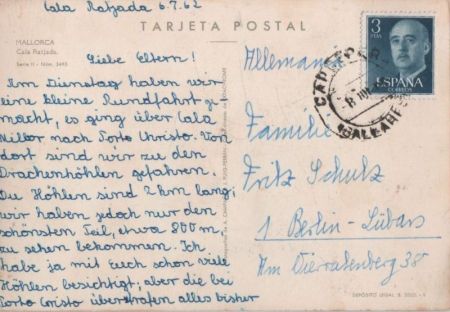 Cala Ratjada 6.7.62
TARJETA POSTAL
MALLORCA
Cala Ratjada.
Serie II - Núm. 3495
Liebe Eltern!
Am Dienstag haben wir
eine kleine Rundfahrt ge-
macht, es ging über Cala
Millor nach Porto Christo. Von
dort sind wir zu den
Drachenhöhlen gefahren.
Die Höhlen sind 2 km lang,
wir haben jedoch nur den
schönsten Teil, etwa 800 m,
zu sehen bekommen. Ich
habe ja mit Euch schon viele
Höhlen besichtigt, aber die bei
Porto Cristo übertrafen alles bisher
3
PTAS
ESPAÑA
CORREOS
Allemania
Familie
Fritz Schulz
1 Berlin-Lübars
Am Vierrutenberg 38
DEPÓSITO LEGAL B.